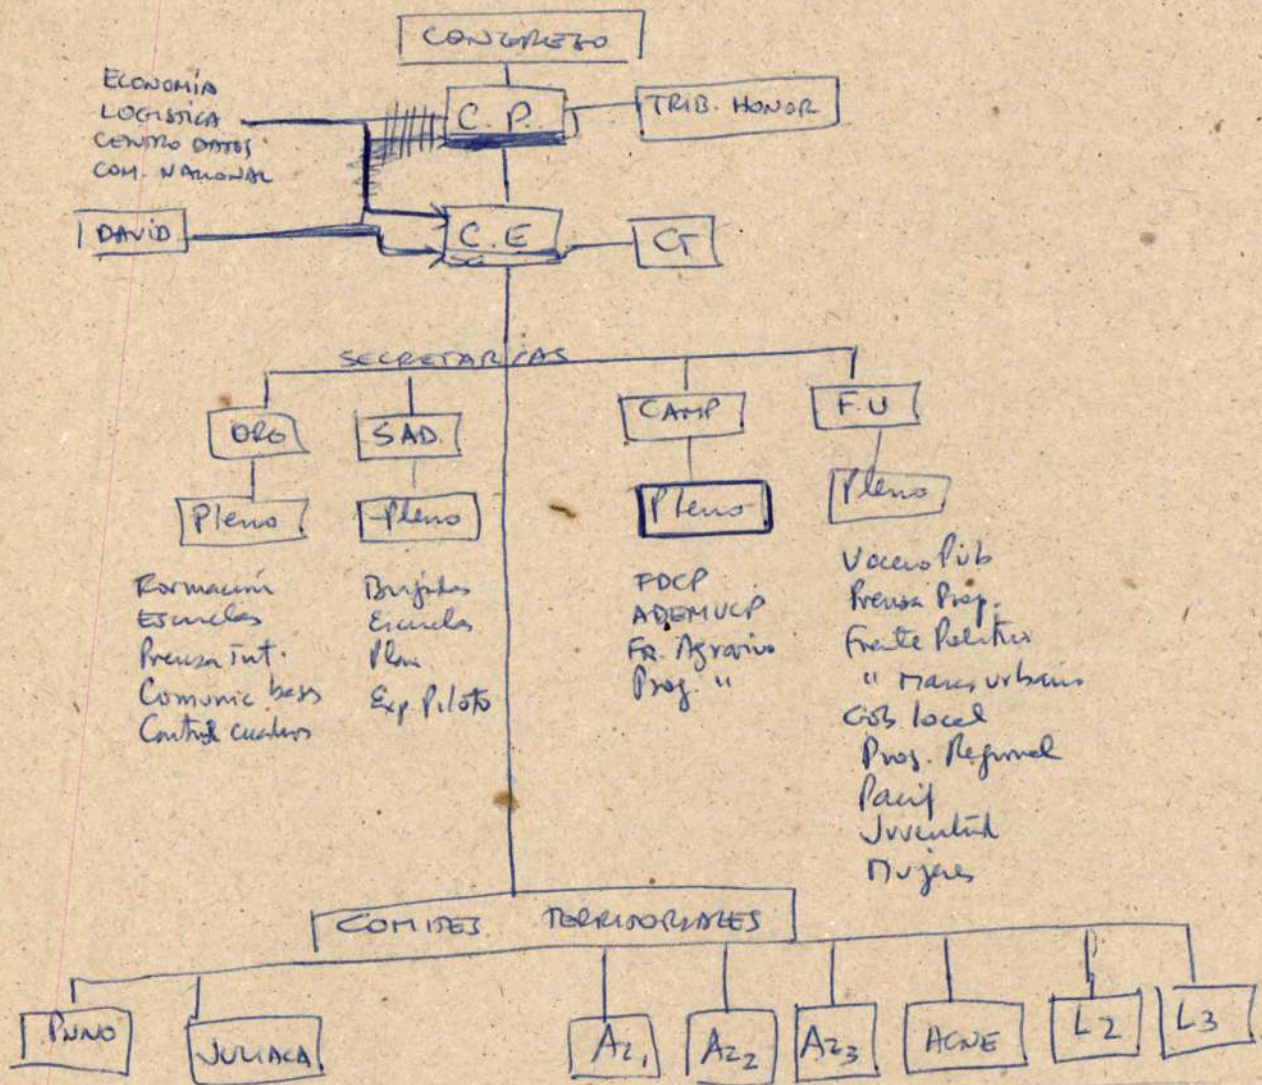 CONGRESO
ECONOMÍA
LOGISTICA
CENTRO DATOS
COM. NACIONAL
C.P.
TRIB. HONOR
DAVID
C.E
CT
SECRETARÍAS
ORG
SAD.
CAMP
F.U
Pleno
Pleno
Pleno
Pleno
Formación
Escuelas
Prensa Int.
Comunic. bases
Control cuadros
Brigadas
Escuelas
Plan
Exp Piloto
FDCP
ADEMUCP
Fr. Agrario
Prog. "
Vocero Púb
Prensa Prop.
Frente Politico
" Masas urbano
Gob local
Prog. Regional
Pacif
Juventud
Mujeres
COMITES TERRITORIALES
PUNO
JULIACA
AZ1
AZ2
AZ3
ACNE
L2
L3